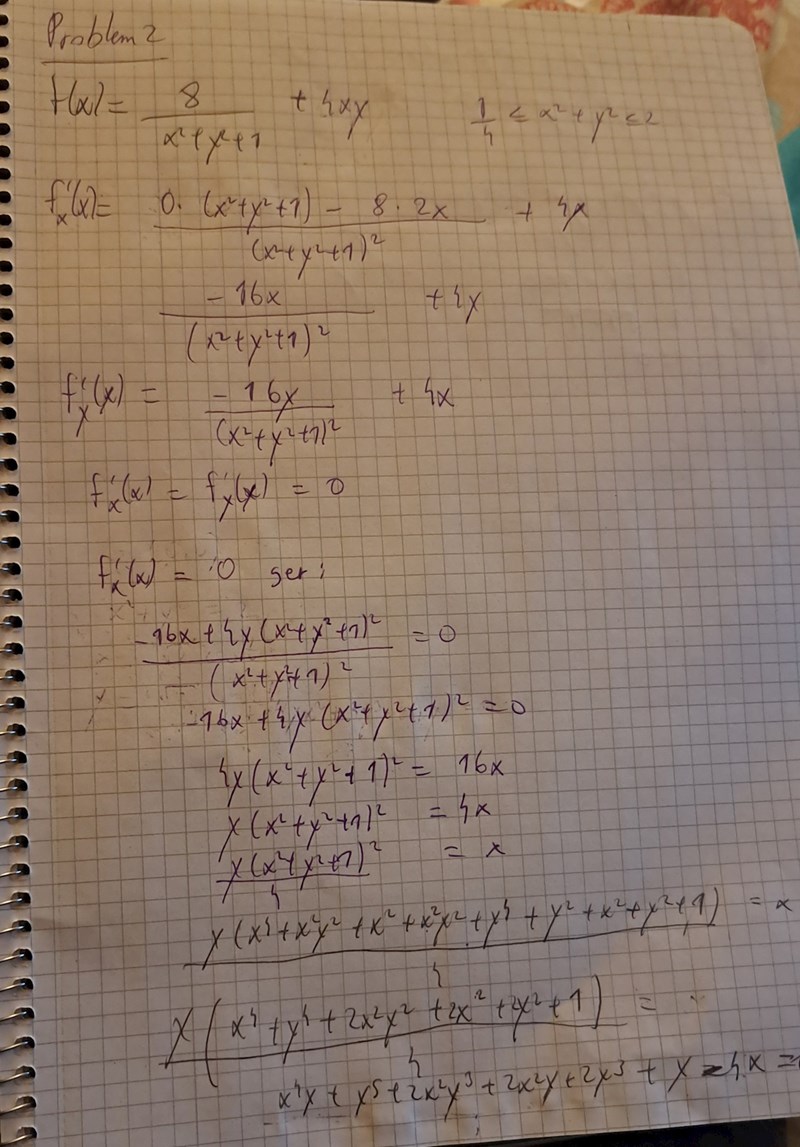 Problem 2
f(x) = 8 / (x²+y²+1) + 4xy    1/4 ≤ x²+y² ≤ 2
f'x(x) = (0·(x²+y²+1) - 8·2x) / (x²+y²+1)² + 4y
-16x / (x²+y²+1)² + 4y
f'y(x) = -16y / (x²+y²+1)² + 4x
f'x(x) = f'y(x) = 0
f'x(x) = 0 ger:
(-16x + 4y(x²+y²+1)²) / (x²+y²+1)² = 0
-16x + 4y(x²+y²+1)² = 0
4y(x²+y²+1)² = 16x
y(x²+y²+1)² = 4x
y(x²+y²+1)² / 4 = x
y(x⁴+x²y²+x²+x²y²+y⁴+y²+x²+y²+1) / 4 = x
y(x⁴+y⁴+2x²y²+2x²+2y²+1) / 4 =
x⁴y + y⁵ + 2x²y³ + 2x²y + 2y³ + y - 4x =